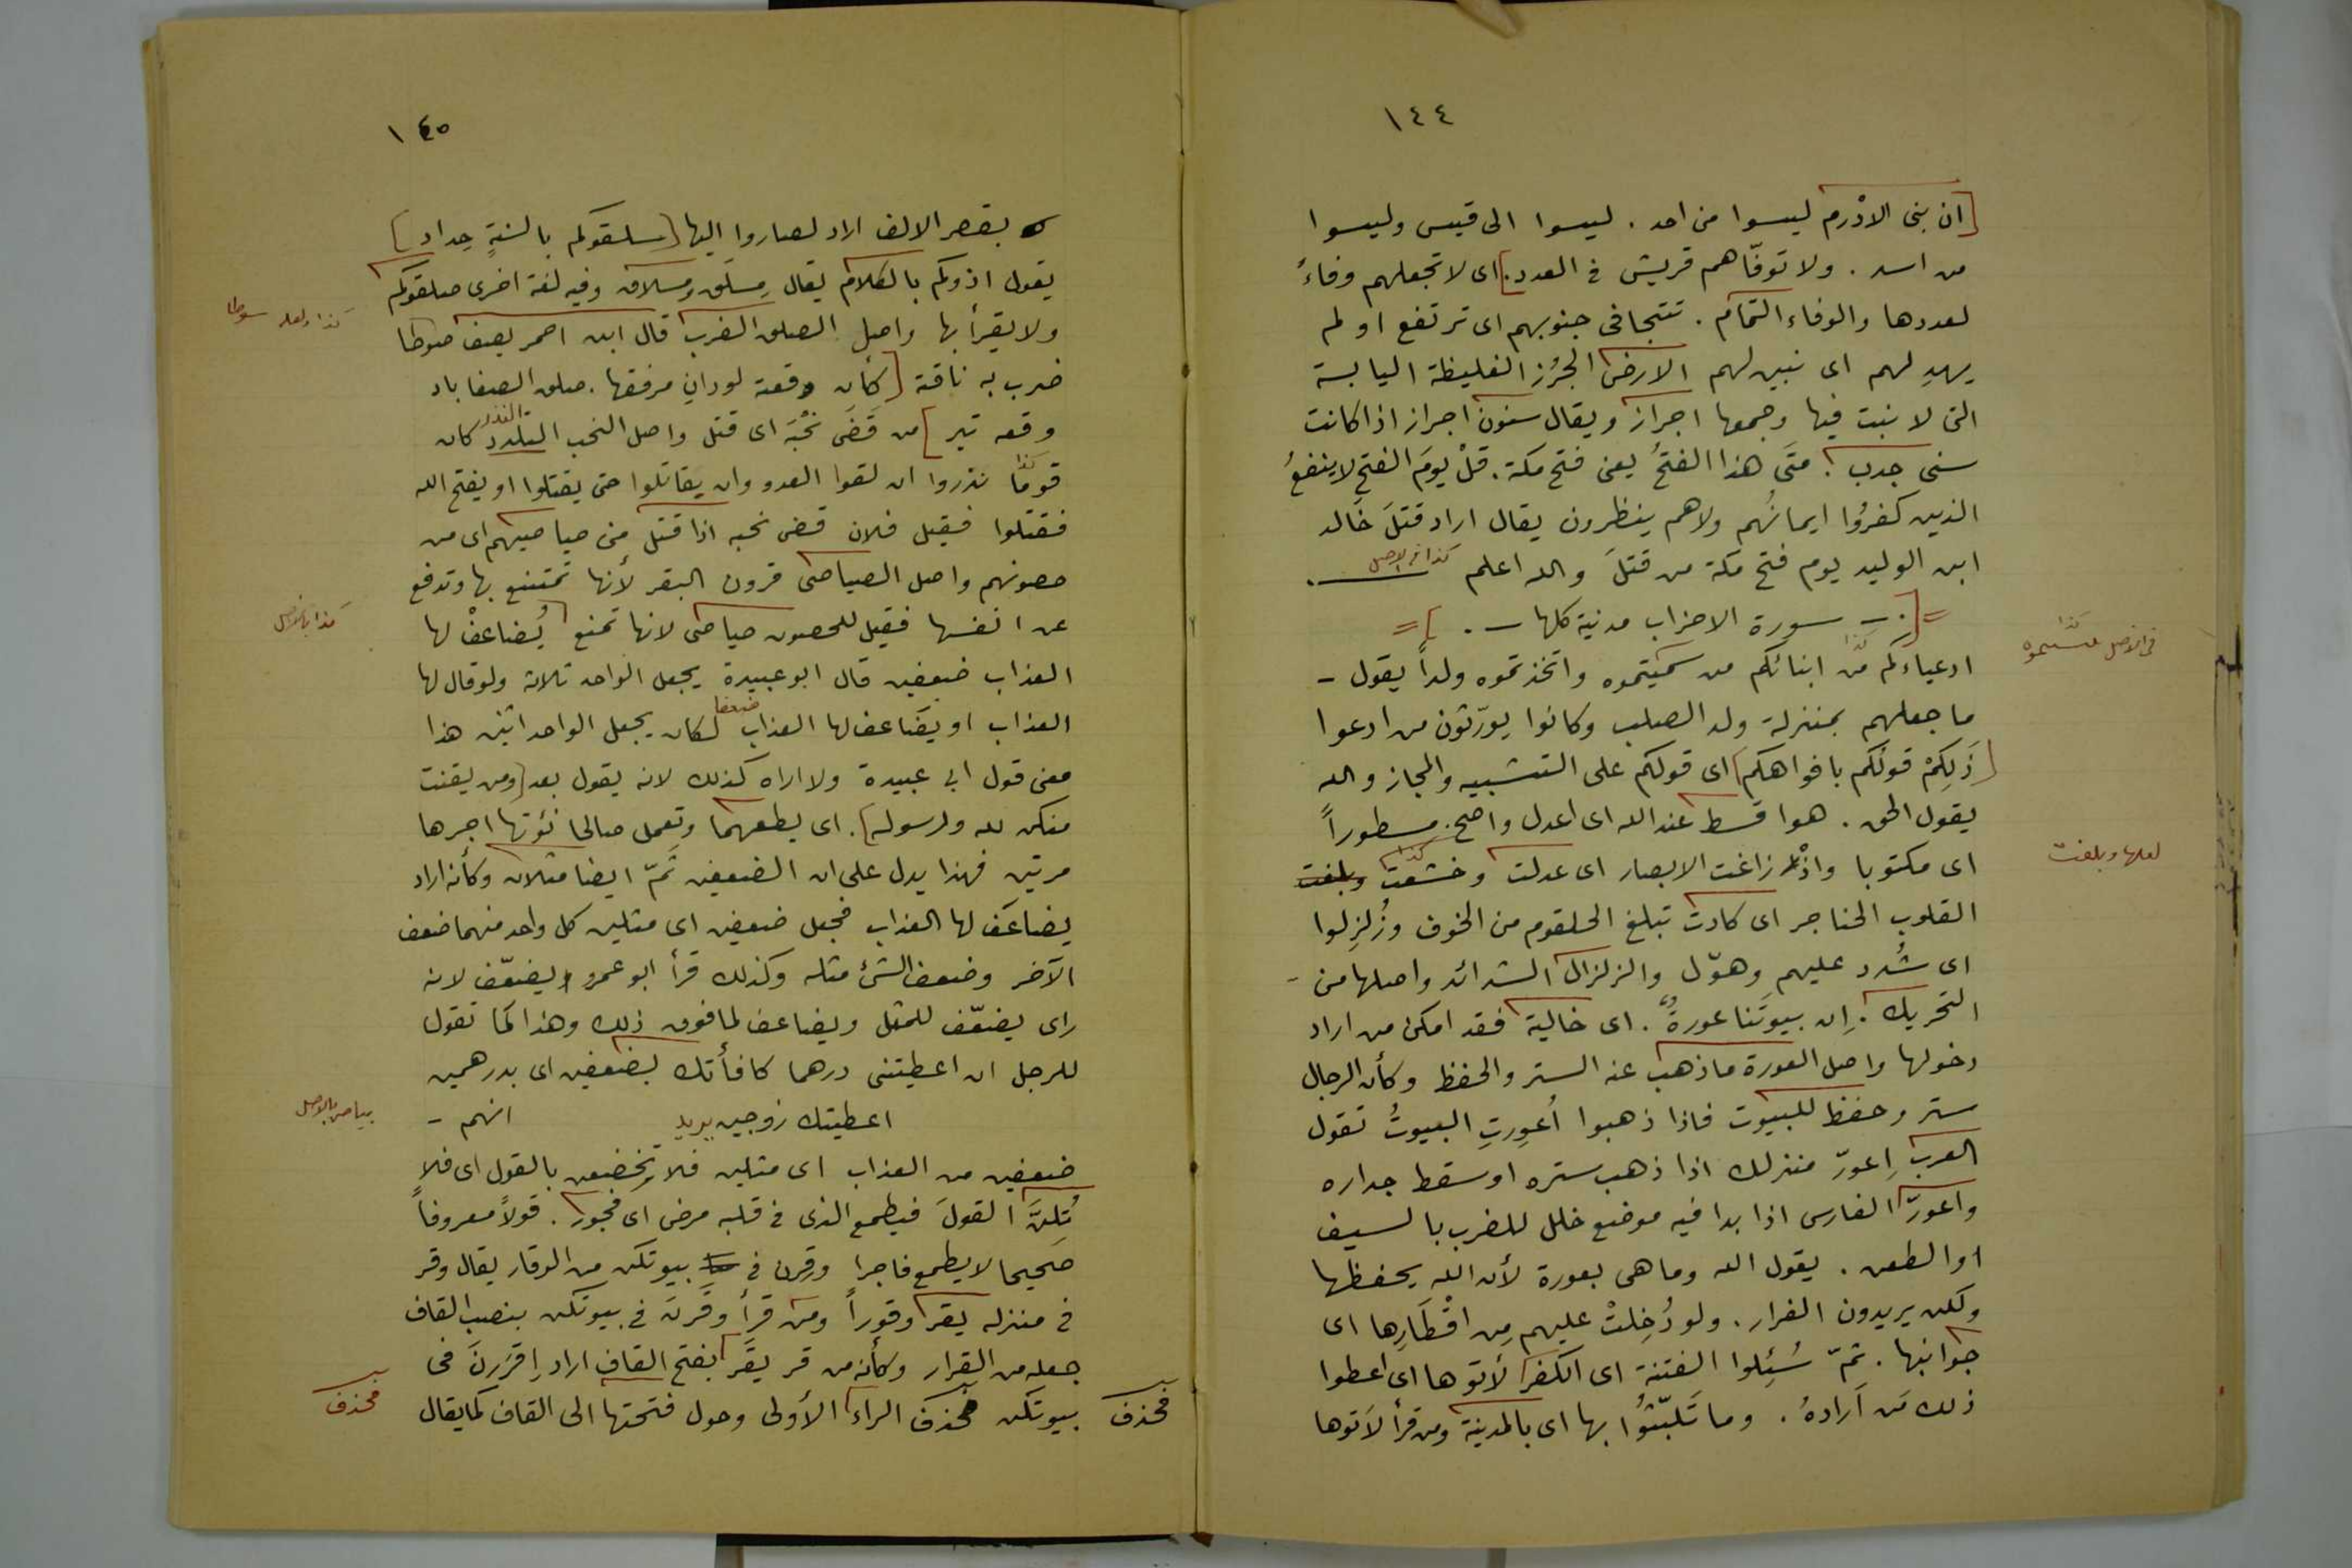 ١٤٤
[ان بنى الادْرم ليسوا من احد . ليسوا الى قيس وليسوا
من اسد . ولا توفّاهم قريش فى العدد.] اى لا تجعلهم وفاءً
لعددها والوفاء التمام . تتجافى جنوبهم اى ترتفع او لم
يهدِ لهم اى نبين لهم الارض الجرُز الغليظة اليابسة
التى لا نبت فيها وجمعها اجراز ويقال سنون اجراز اذا كانت
سنى جدب . متَى هذا الفتحُ يعنى فتح مكة . قلْ يومَ الفتح لا ينفعُ
الذين كفرُوا ايمانُهم ولا هم ينظرون يقال اراد قتلَ خالد
ابن الوليد يوم فتح مكة من قتلَ والله اعلم كذا فى الاصل
=[. - سورة الاحزاب مدنية كلها - .]=
ادعياءكم من كذا ابنائكم من سميتموه واتخذتموه ولداً يقول -
فى الاصل كذا
ما جعلهم بمنزلة ولد الصلب وكانوا يورّثون من ادعوا
[ذَلِكمْ قولُكم بافواهكم] اى قولكم على التشبيه والمجاز والله
يقول الحق . هو اقسط عند الله اى اعدل واصح . مسطوراً
اى مكتوبا واذْ زاغت الابصار اى عدلت وخشعت كذا وبلغت
لعلها وبلغت
القلوب الحناجر اى كادت تبلغ الحلقوم من الخوف وزُلزِلوا
اى شُدد عليهم وهوّل والزلزال الشدائد واصلها من -
التحريك . اِن بيوتَنا عورةٌ . اى خالية فقد امكن من اراد
دخولها واصل العورة ما ذهب عنه الستر والحفظ وكأن الرجال
ستر وحفظ للبيوت فاذا ذهبوا اُعوِرتِ البيوتُ تقول
العرب اِعورّ منزلك اذا ذهب ستره او سقط جداره
واعورّ الفارس اذا بدا فيه موضع خلل للضرب بالسيف
او الطعن . يقول الله وما هى بعورة لأن الله يحفظها
ولكن يريدون الفرار . ولو دُخِلتْ عليهم مِن اقْطَارِها اى
جوانبها . ثمّ سُئِلوا الفتنة اى الكفر لأتوها اى اعطوا
ذلك مَن اَرادهُ . وما تَلبّثُوا بها اى بالمدينة ومن قرأ لَاتوها
١٤٥
بقصر الالف اراد لصاروا اليها [سلقوكم بالسنةٍ حِداد]
يقول اذوكم بالكلام يقال مِسلَق ومِسلاق وفيه لغة اخرى صلقوكم
ولا يقرأ بها واصل الصلق الضرب قال ابن احمر يصف صوطا
كذا ولعله سوطا
ضرب به ناقة [كأن وقعته لوذانِ مرفقها . صلق الصفا باد
وقعه تير] من قَضَى نحْبَه اى قتل واصل النحب النذر كان
قوما كذا نذروا ان لقوا العدو وان يقاتلوا حتى يقتلوا او يفتح الله
فقتلوا فقيل فلان قضى نحبه اذا قتل مِن صياصيهم اى من
حصونهم واصل الصياصى قرون البقر لأنها تمتنع بها وتدفع
عن انفسها فقيل للحصون صياصى لانها تمنع يُضاعفْ لها
كذا بالاصل
العذاب ضعفين قال ابو عبيدة يجعل الواحد ثلاثة ولو قال لها
العذاب او يضاعف لها العذاب ضعفا لكان يجعل الواحد اثنين هذا
معنى قول ابى عبيدة ولا اراه كذلك لانه يقول بعد [ومن يقنت
منكن لله ورسوله] . اى يطعهما وتعمل صالحا نؤتها اجرها
مرتين فهذا يدل على ان الضعفين ثَمّ ايضا مثلان وكأنه اراد
يضاعَف لها العذاب فجعل ضعفين اى مثلين كل واحد منهما ضعف
الآخر وضعف الشئ مثله وكذلك قرأ ابو عمرو يضعّف لانه
راى يضعّف للمثل ويضاعف لما فوق ذلك وهذا كما تقول
للرجل ان اعطيتنى درهما كافأتك بضعفين اى بدرهمين
اعطيتك زوجين يريد انهم -
بياض بالاصل
ضعفين من العذاب اى مثلين فلا تخضعن بالقول اى فلا
تُلِنَّ القولَ فيطمع الذى فى قلبه مرض اى فجور . قولاً معروفاً
صحيحا لا يطمع فاجرا وقِرن فى بيوتكن من الوقار يقال وقر
فى منزله يقر وقوراً ومن قرأ وقَرنَ فى بيوتكن بنصب القاف
جعله من القرار وكأنه من قر يقَر بفتح القاف اراد اِقرَرنَ فى
بيوتكن فحذف الراء الأولى وحول فتحتها الى القاف كما يقال
فحذف
فحذف